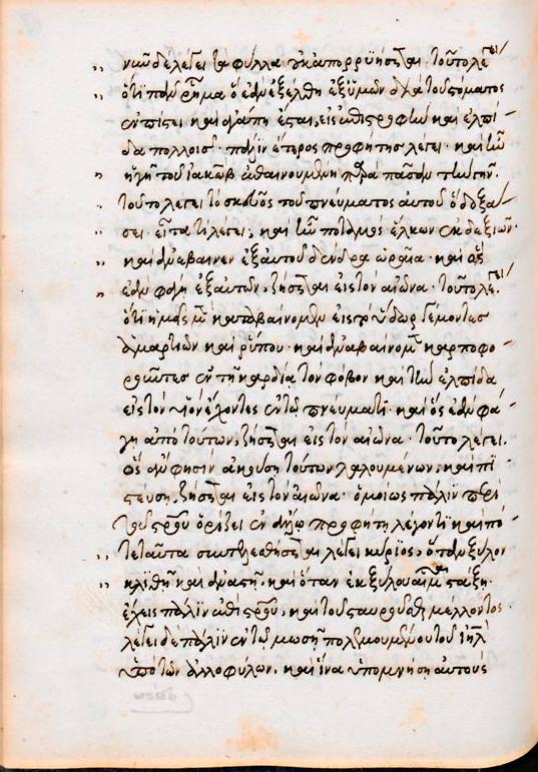 νῦν δὲ λέγει τὰ φύλλα οὐκ ἀπορρυήσεται· τοῦτο λέγει
ὅτι πᾶν ῥῆμα ὃ ἐὰν ἐξέλθῃ ἐξ ὑμῶν διὰ τοῦ στόματος
ἐν πίστει καὶ ἀγάπῃ ἔσται εἰς ἐπιστροφὴν καὶ ἐλπί-
δα πολλοῖς· πάλιν ἕτερος προφήτης λέγει· καὶ ἦν
ἡ γῆ τοῦ ἰακὼβ ἐπαινουμένη παρὰ πᾶσαν τὴν γῆν.
τοῦτο λέγει τὸ σκεῦος τοῦ πνεύματος αὐτοῦ ὃ δοξά-
σει· εἶτα τί λέγει; καὶ ἦν ποταμὸς ἕλκων ἐκ δεξιῶν·
καὶ ἀνέβαινεν ἐξ αὐτοῦ δένδρα ὡραῖα· καὶ ὃς
ἐὰν φάγῃ ἐξ αὐτῶν, ζήσεται εἰς τὸν αἰῶνα· τοῦτο λέγει
ὅτι ἡμεῖς μὲν καταβαίνομεν εἰς τὸ ὕδωρ γέμοντες
ἁμαρτιῶν καὶ ῥύπου· καὶ ἀναβαίνομεν καρποφο-
ροῦντες ἐν τῇ καρδίᾳ τὸν φόβον καὶ τὴν ἐλπίδα
εἰς τὸν ἰησοῦν ἔχοντες ἐν τῷ πνεύματι· καὶ ὃς ἐὰν φά-
γῃ ἀπὸ τούτων, ζήσεται εἰς τὸν αἰῶνα· τοῦτο λέγει.
ὃς ἂν φησὶν ἀκούσῃ τούτων λαλουμένων, καὶ πι-
στεύσῃ, ζήσεται εἰς τὸν αἰῶνα· ὁμοίως πάλιν περὶ
τοῦ σταυροῦ ὁρίζει ἐν ἄλλῳ προφήτῃ λέγοντι καὶ πό-
τε ταῦτα συντελεσθήσεται λέγει κύριος, ὅταν ξύλον
κλιθῇ καὶ ἀναστῇ, καὶ ὅταν ἐκ ξύλου αἷμα στάξῃ·
ἔχεις πάλιν περὶ τοῦ σταυροῦ, καὶ τοῦ σταυροῦσθαι μέλλοντος
λέγει δὲ πάλιν ἐν τῷ μωσῇ πολεμουμένου τοῦ ἰηλ
ὑπὸ τῶν ἀλλοφύλων, καὶ ἵνα ὑπομνήσῃ αὐτοὺς